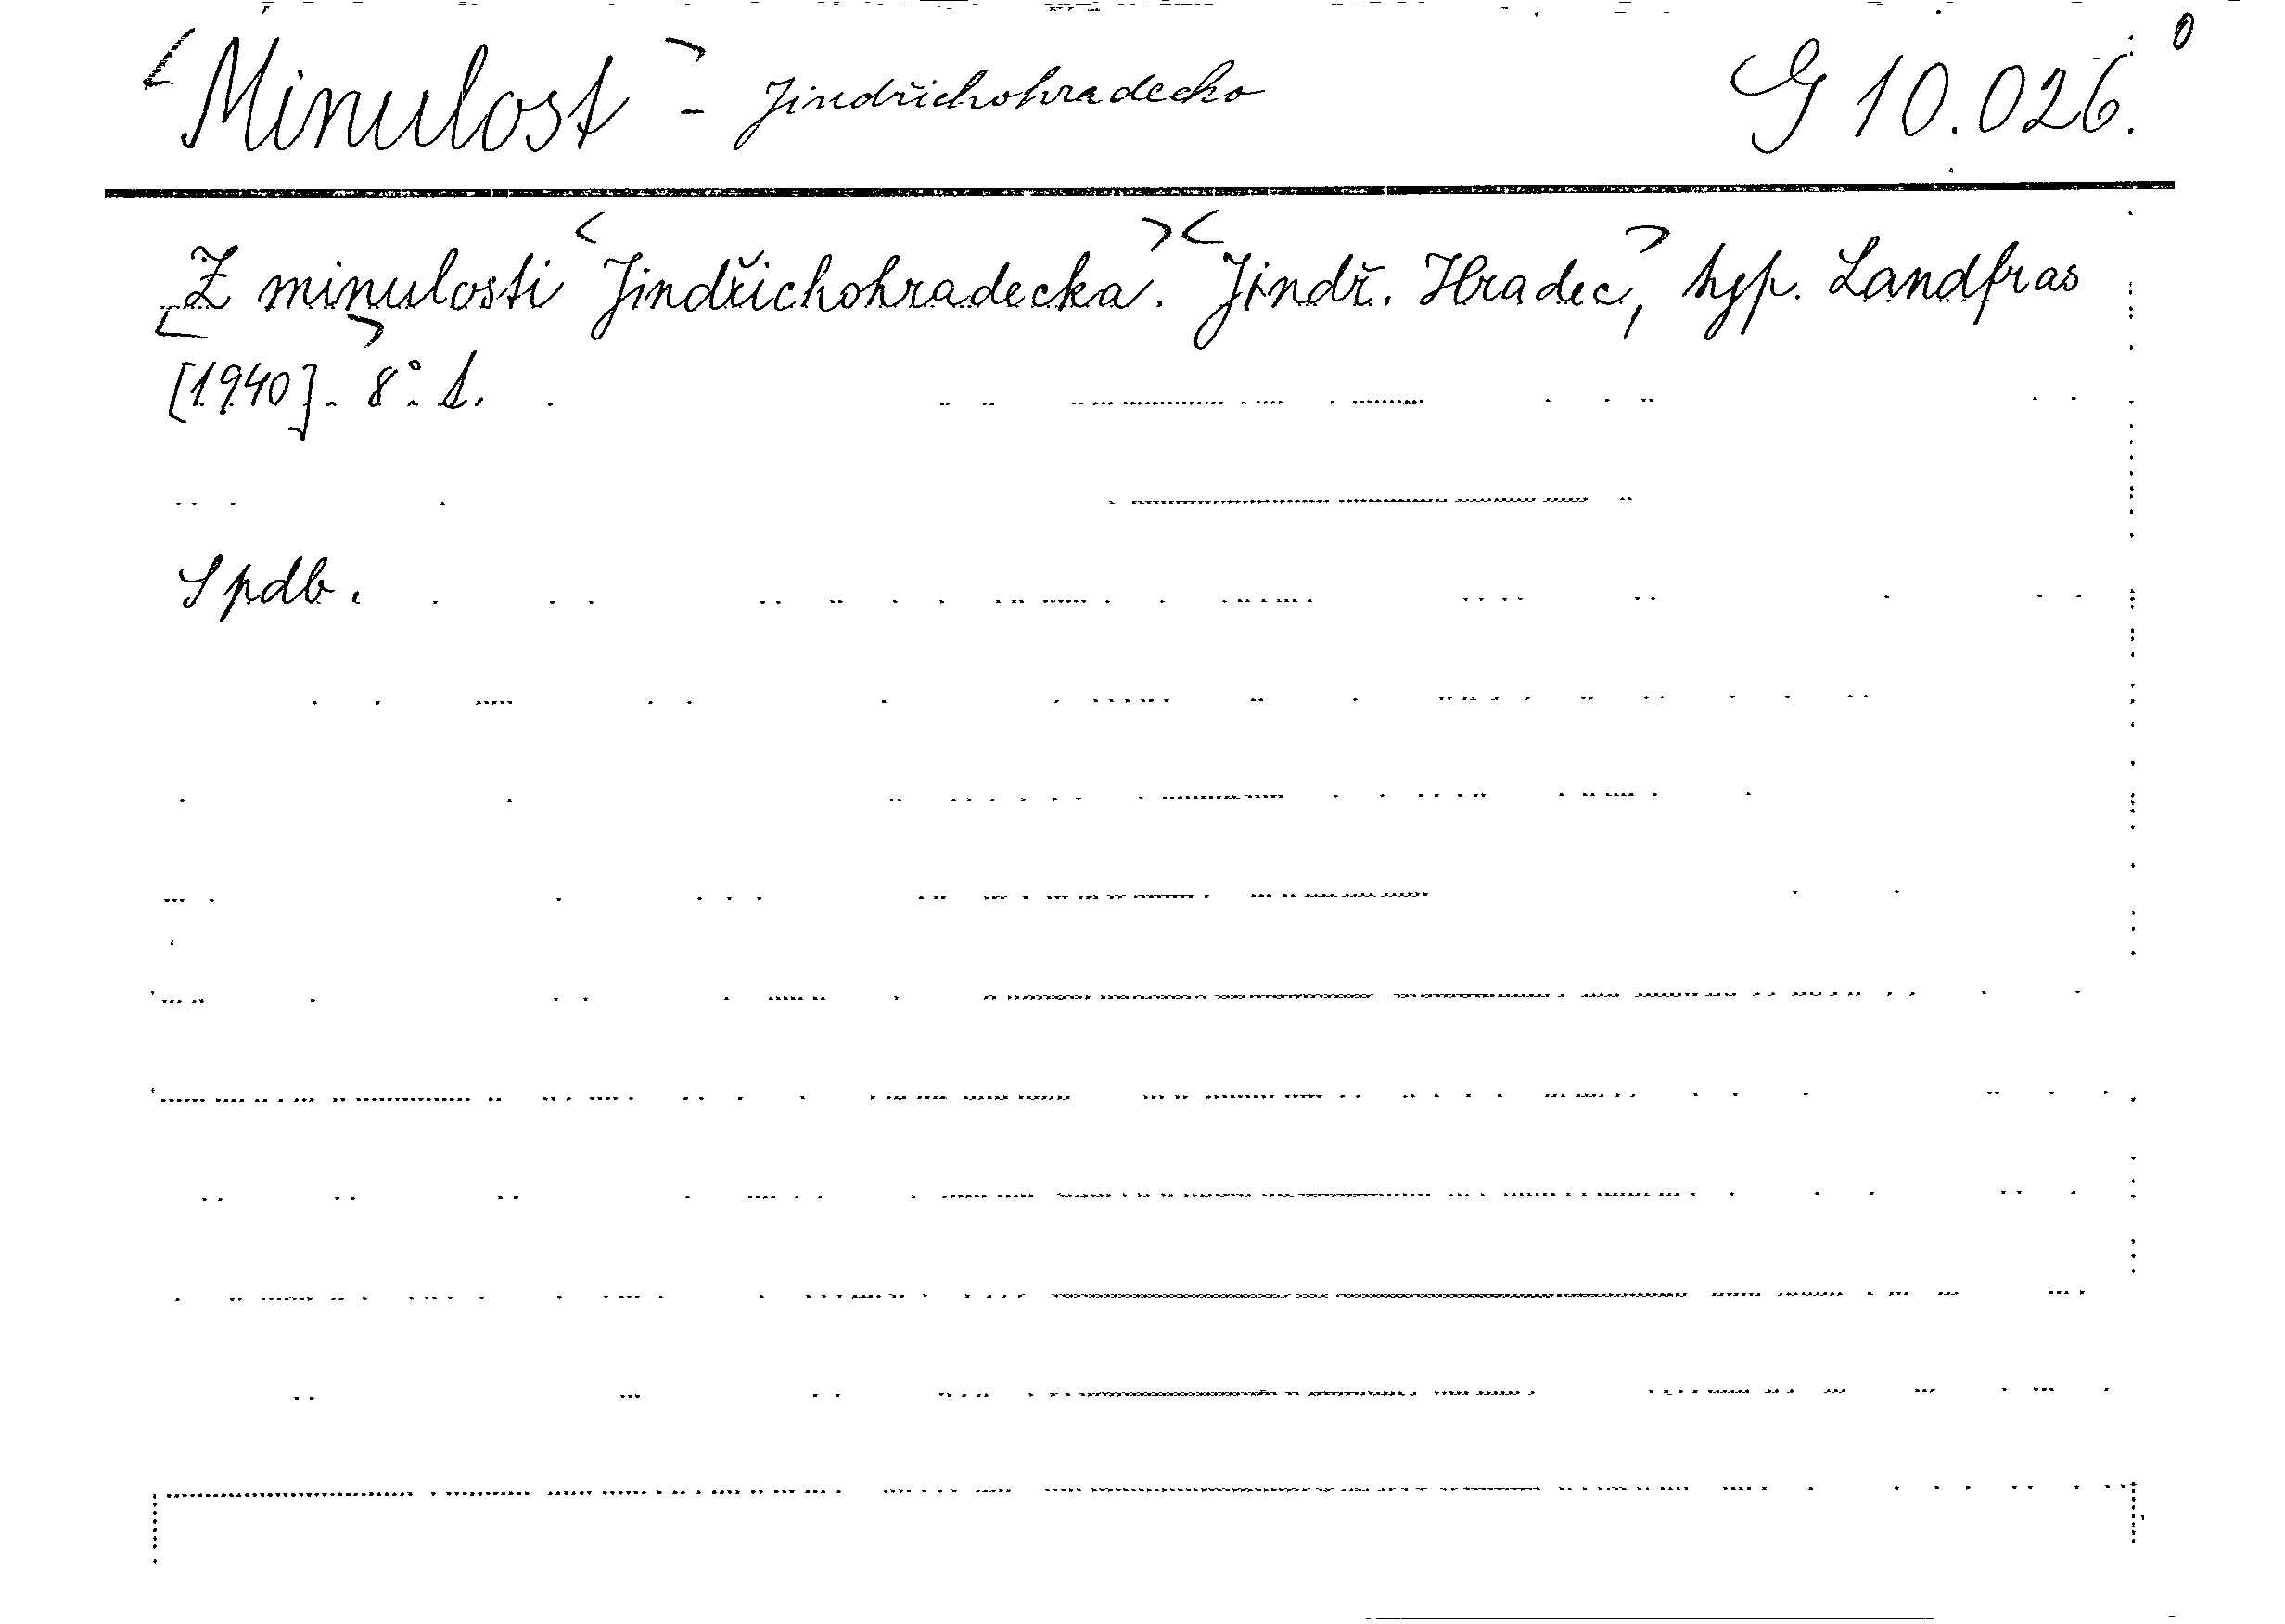 <Minulost> - Jindřichohradecko G 10.026.
Z minulosti <Jindřichohradecka.> <Jindř. Hradec,> typ. Landfras
<[1940]>. 8°. S.
Spdb.